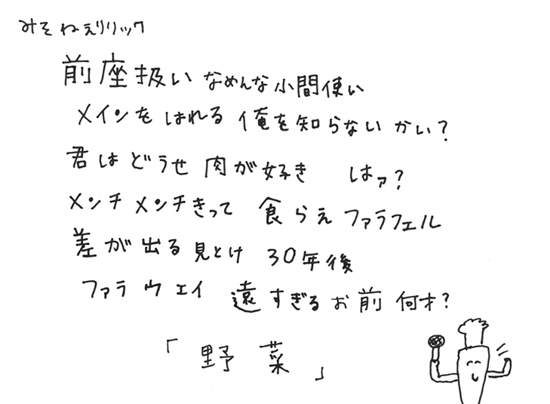 みそねぇリリック
前座扱い なめんな小間使い
メインをはれる 俺を知らないかい?
君はどうせ 肉が好き はァ?
メンチメンチきって 食らえファラフェル
差が出る見とけ 30年後
ファラウェイ 遠すぎるお前 何才?
「野菜」